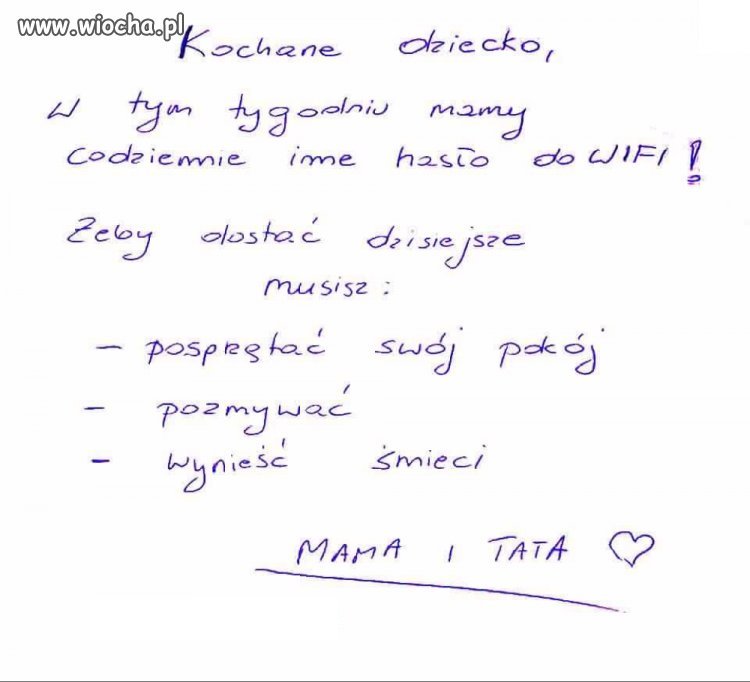 www.wiocha.pl
Kochane dziecko,
W tym tygodniu mamy
codziennie inne hasło do WIFI!
Żeby dostać dzisiejsze
musisz:
- posprzątać swój pokój
- pozmywać
- wynieść śmieci
MAMA I TATA ♡